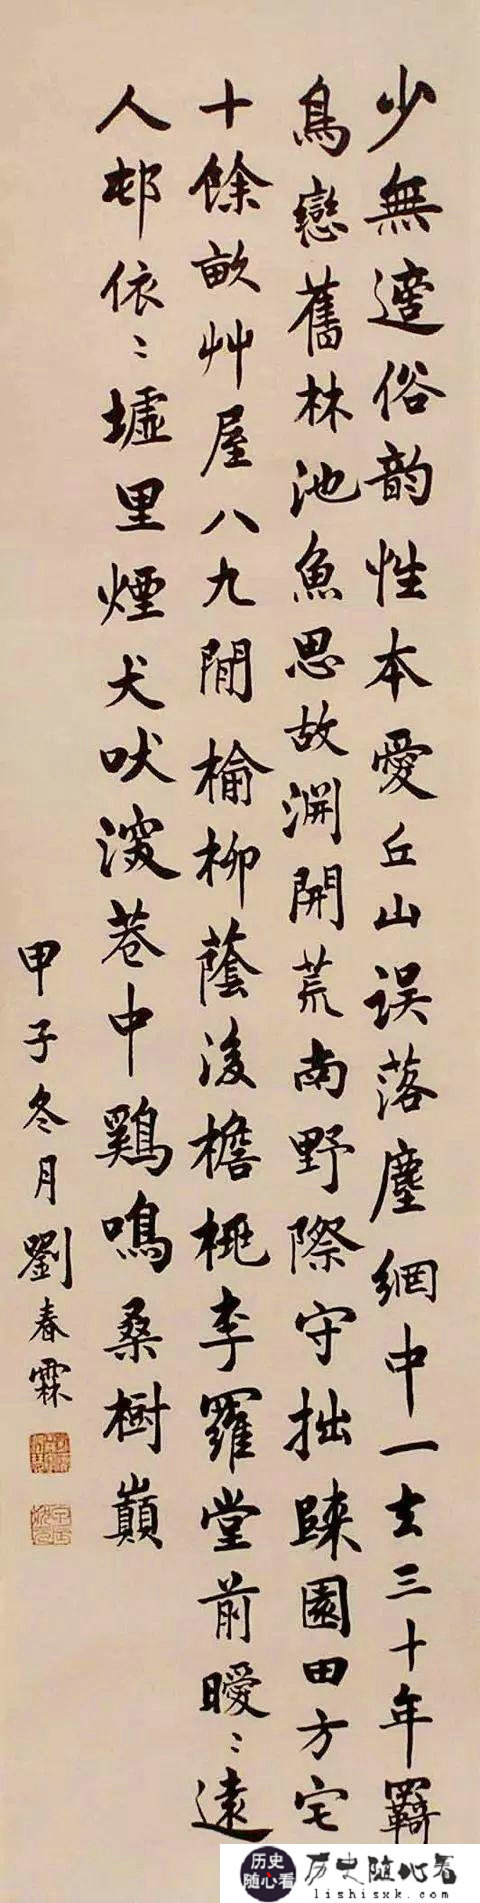 少無適俗韵性本愛丘山误落塵網中一去三十年羇
鳥戀舊林池魚思故淵開荒南野際守拙踈園田方宅
十餘畝艸屋八九間榆柳蔭後檐桃李羅堂前曖〻遠
人邨依〻墟里煙犬吠深巷中鷄鳴桑樹巔
甲子冬月劉春霖
历史随心看
历史随心看
lishisxk.com